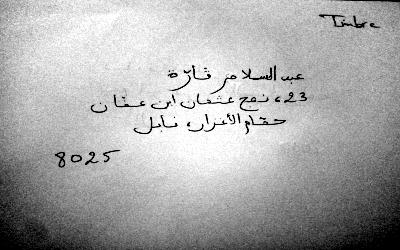 Timbre
عبد السلام قارة
23، نهج عثمان ابن عفان
حمام الأغزاز، نابل
8025